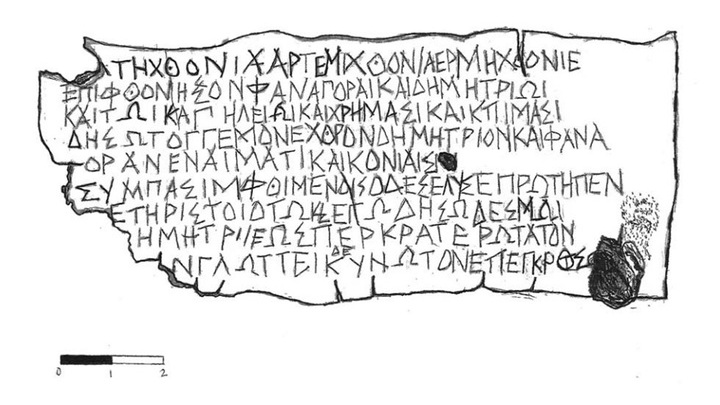 ΑΤΗΧΘΟΝΙΧΑΡΤΕΜΙΧΘΟΝΙΑΕΡΜΗΧΘΟΝΙΕ
ΕΠΙΦΘΟΝΗΣΟΝΦΑΝΑΓΟΡΑΙΚΑΙΔΗΜΗΤΡΙΩΙ
ΚΑΙΤΩΙΚΑΠΗΛΕΙΩΙΚΑΙΧΡΗΜΑΣΙΚΑΙΚΤΙΜΑΣΙ
ΔΗΣΩΤΟΓΓΕΜΟΝΕΧΘΡΟΝΔΗΜΗΤΡΙΟΝΚΑΙΦΑΝΑ
ΟΡΑΝΕΝΑΙΜΑΤΙΚΑΙΚΟΝΙΑΙΣΙ
ΣΥΜΠΑΣΙΜΦΘΙΜΕΝΟΙΣΟΔΕΣΕΛΥΣΕΠΡΩΤΗΠΕΝ
ΕΤΗΡΙΣΤΟΙΟΤΩΙΣΕΓΩΔΗΣΩΔΕΣΜΩΙ
ΗΜΗΤΡΙΕΩΣΠΕΡΚΡΑΤΕΡΩΤΑΤΟΝ
ΔΕ
ΙΝΓΛΩΤΤΕΙΚΥΝΩΤΟΝΕΠΕΓΚΡΟΣ
0 1 2